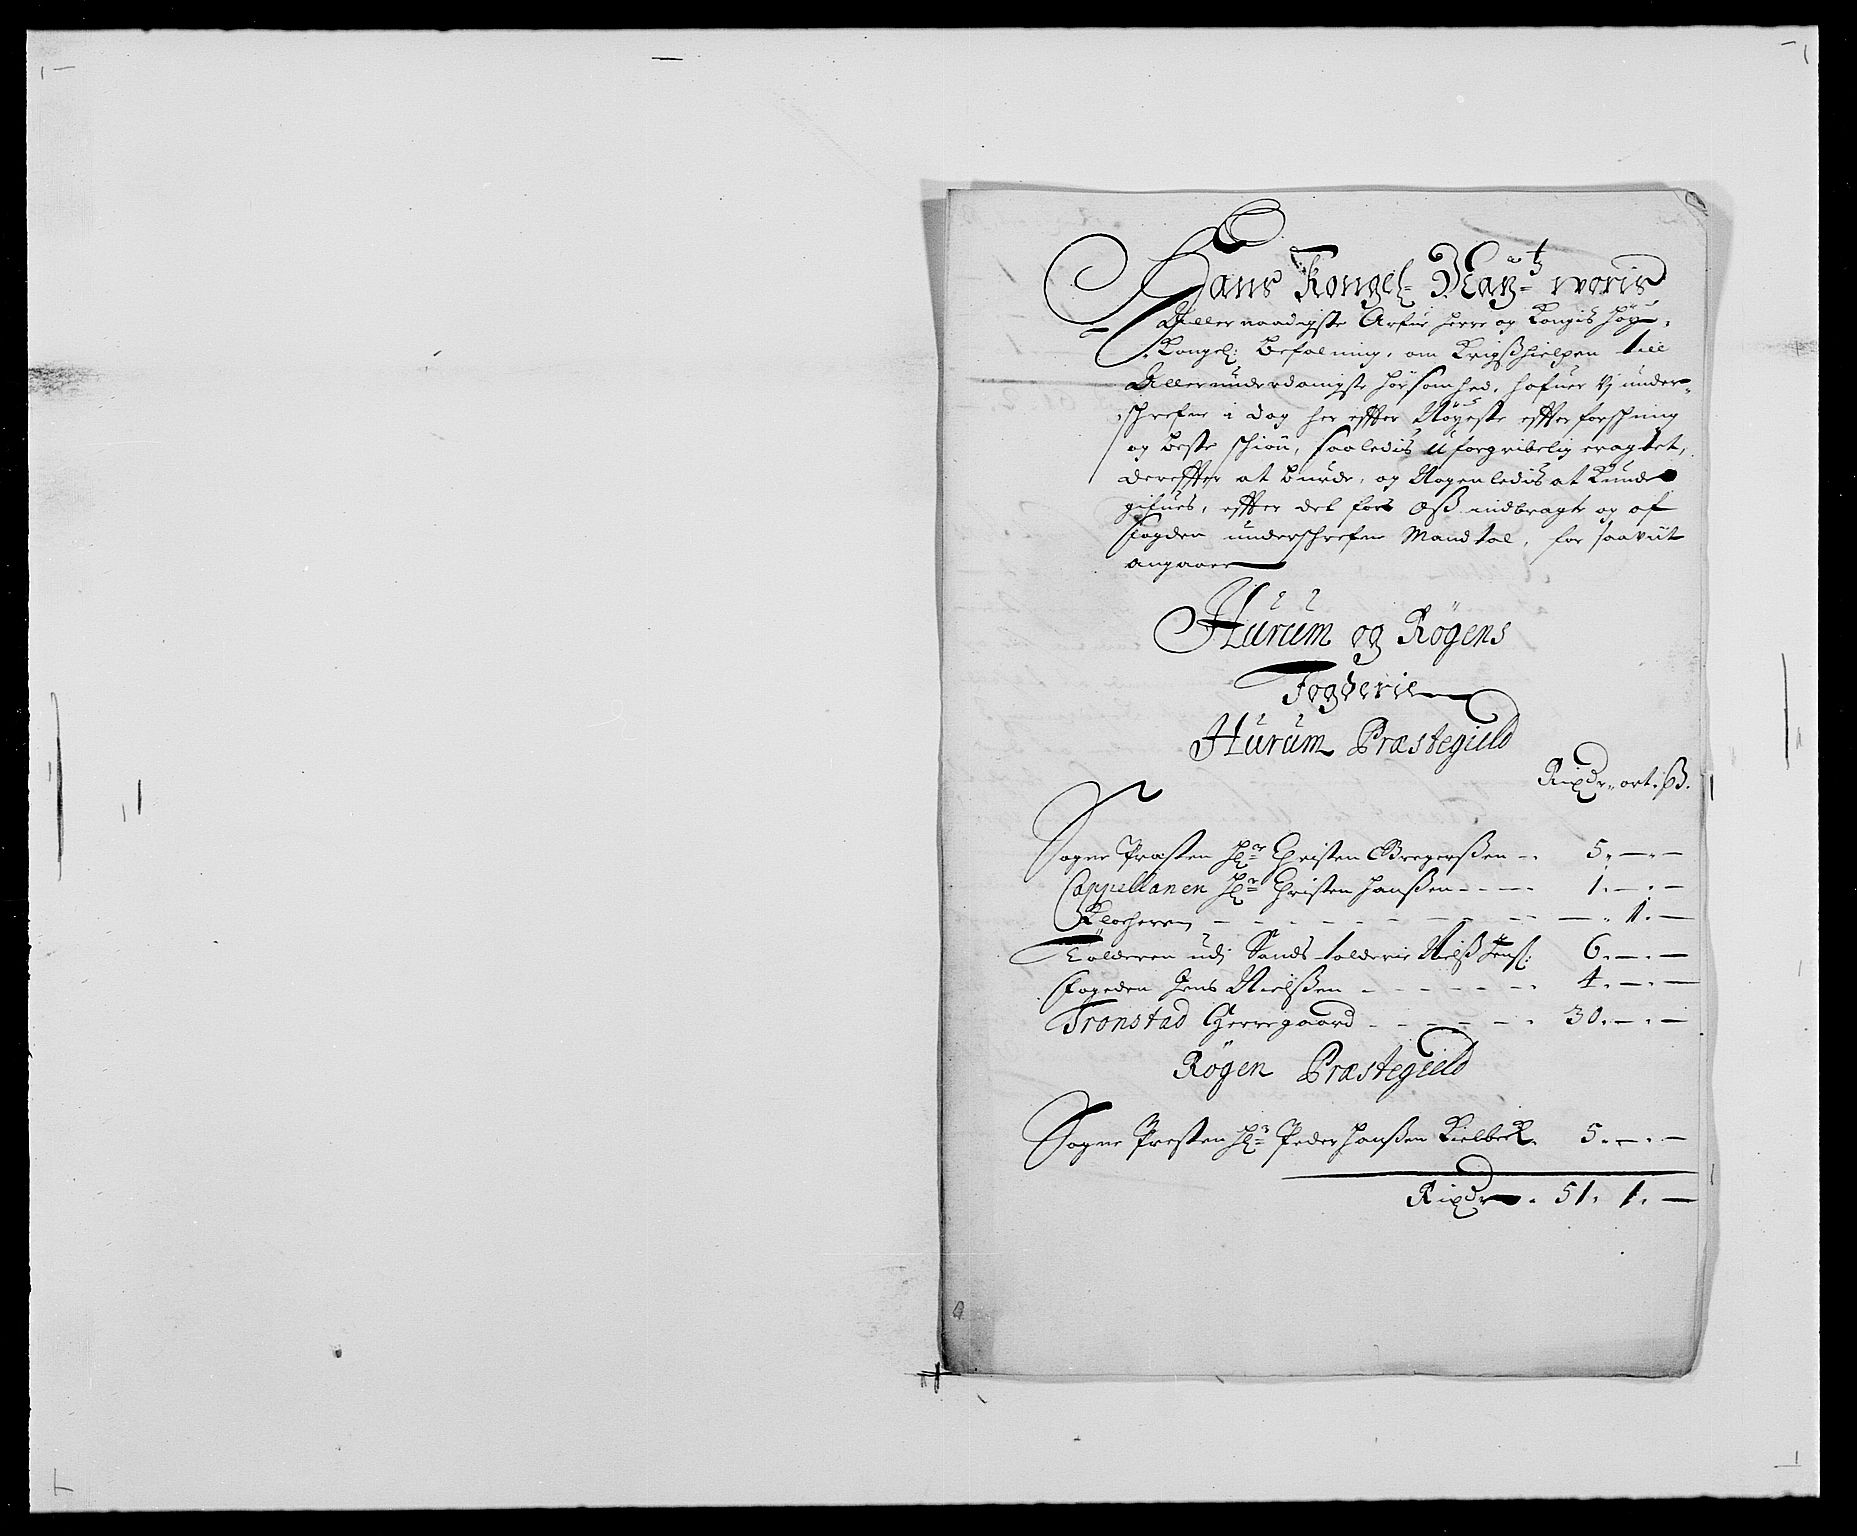 Hans Kongel: Maytz woris
Allernaadigste Arfue herre og Kongis høye
Kongel: Befalning, om Krigsshielpen till
Allerunderdanigste hørsomhed, hafuer Vj under-
schrefne i dag her effter Nøyeste effterforschning
og beste schiøn, saaledis uforgribelig eragtet,
dereffter at burde, og Nogenledis at Kunde
gifues, effter det for Oss indbragte og af
Fogden underschrefne Mandtal, for saaviit
angaaer
Hurum og Røgens
Fogderie
Hurum Præstegield
Rixdr. ort. ß.
Sogne Præsten Hr. Christen Gregerssen - 5. — . —
Cappellanen Hr. Christen Hanssen - - - 1. — . —
Klocheren - - - - - — . 1. —
Tolderen udj Sands tolderie Nielss Jens: 6. — . —
Fogeden Jens Nielssen - - - - 4. — . —
Tronstad Herregaard - - - - 30. — . —
Røgen Præstegield
Sogne Presten Hr. Peder Hanssen Kielbeck. 5. — . —
Rixdr. 51. 1. —